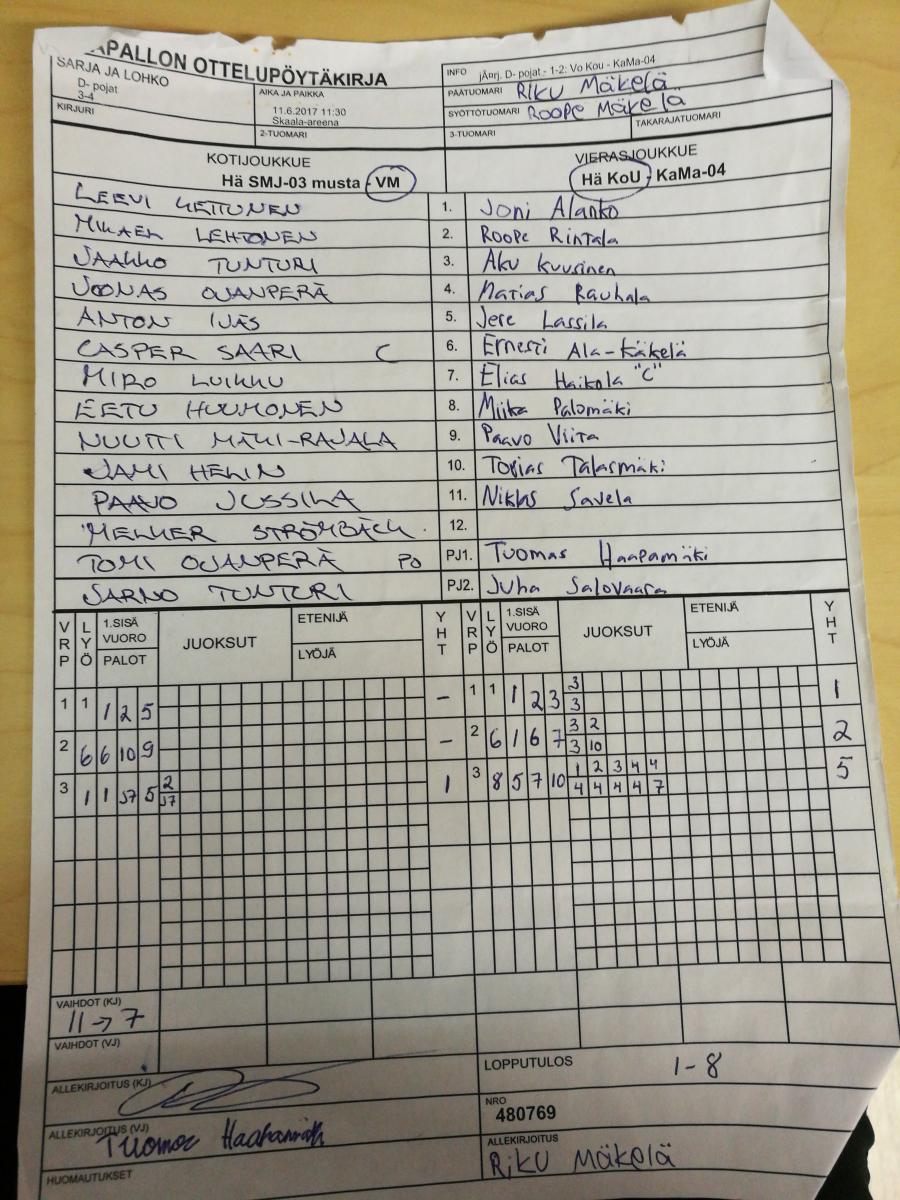 APALLON OTTELUPÖYTÄKIRJA
SARJA JA LOHKO
D- pojat
3-4
AIKA JA PAIKKA
11.6.2017 11:30
Skaala-areena
INFO jÃ¤rj. D- pojat - 1-2: Vo Kou - KaMa-04
PÄÄTUOMARI RIKU MÄKELÄ
SYÖTTÖTUOMARI ROOPE MÄKELÄ
KIRJURI
2-TUOMARI
3-TUOMARI
TAKARAJATUOMARI
KOTIJOUKKUE
Hä SMJ-03 musta - VM
VIERASJOUKKUE
Hä KoU - KaMa-04
LEEVI KETTUNEN 1. Joni Alanko
MIKAEL LEHTONEN 2. Roope Rintala
JAAKKO TUNTURI 3. Aku Kuusinen
JOONAS OJANPERÄ 4. Matias Rauhala
ANTON IJÄS 5. Jere Lassila
CASPER SAARI C 6. Ernesti Ala-Käkelä
MIRO LUIKKU 7. Elias Haikola "C"
EETU HUUMONEN 8. Miika Palomäki
NUUTTI MÄKI-RAJALA 9. Paavo Viita
JAMI HELIN 10. Topias Talasmäki
PAAVO JUSSILA 11. Niklas Savela
MELKER STRÖMBÄCK 12.
TOMI OJANPERÄ PO PJ1. Tuomas Haapamäki
JARNO TUNTURI PJ2. Juha Salovaara
VRP LYÖ 1.SISÄ VUORO PALOT JUOKSUT ETENIJÄ LYÖJÄ YHT VRP LYÖ 1.SISÄ VUORO PALOT JUOKSUT ETENIJÄ LYÖJÄ YHT
1 1 1 2 5 - 1 1 1 2 3 3 1
3
2 6 6 10 9 - 2 6 1 6 7 3 2 2
3 10
3 1 1 J7 5 2 1 3 8 5 7 10 1 2 3 4 4 5
J7 4 4 4 4 7
VAIHDOT (KJ)
11→7
VAIHDOT (VJ)
ALLEKIRJOITUS (KJ)
LOPPUTULOS 1-8
NRO
480769
ALLEKIRJOITUS (VJ)
Tuomas Haapamäki
ALLEKIRJOITUS
RIKU MÄKELÄ
HUOMAUTUKSET